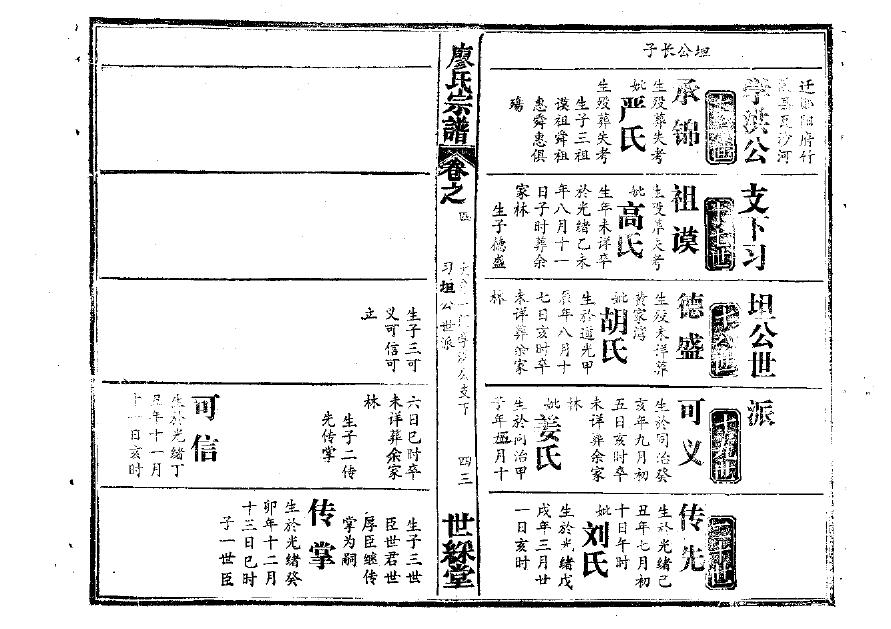 坦公长子
学洪公
支下习
坦公世
派
承锦
生殁葬失考
妣严氏
生殁葬失考
生子三祖
谟祖舜祖
惠舜惠俱
殇
祖谟
生殁葬失考
妣高氏
生年未详卒
於光绪乙未
年八月十一
日子时葬余
家林
生子德盛
德盛
生殁未详葬
黄家湾
妣胡氏
生於道光甲
辰年八月十
七日亥时卒
未详葬余家
林
生子三可
义可信可
立
可义
生於同治癸
亥年九月初
五日亥时卒
未详葬余家
林
妣姜氏
生於同治甲
子年五月十
六日巳时卒
未详葬余家
林
生子二传
先传掌
可信
生於光绪丁
丑年十一月
十一日亥时
传先
生於光绪己
丑年七月初
十日午时
妣刘氏
生於光绪戊
戌年三月廿
一日亥时
生子三世
臣世君世
厚臣继传
掌为嗣
传掌
生於光绪癸
卯年十二月
十三日巳时
子一世臣
廖氏宗譜
卷之四
习坦公世派
四三
世綵堂